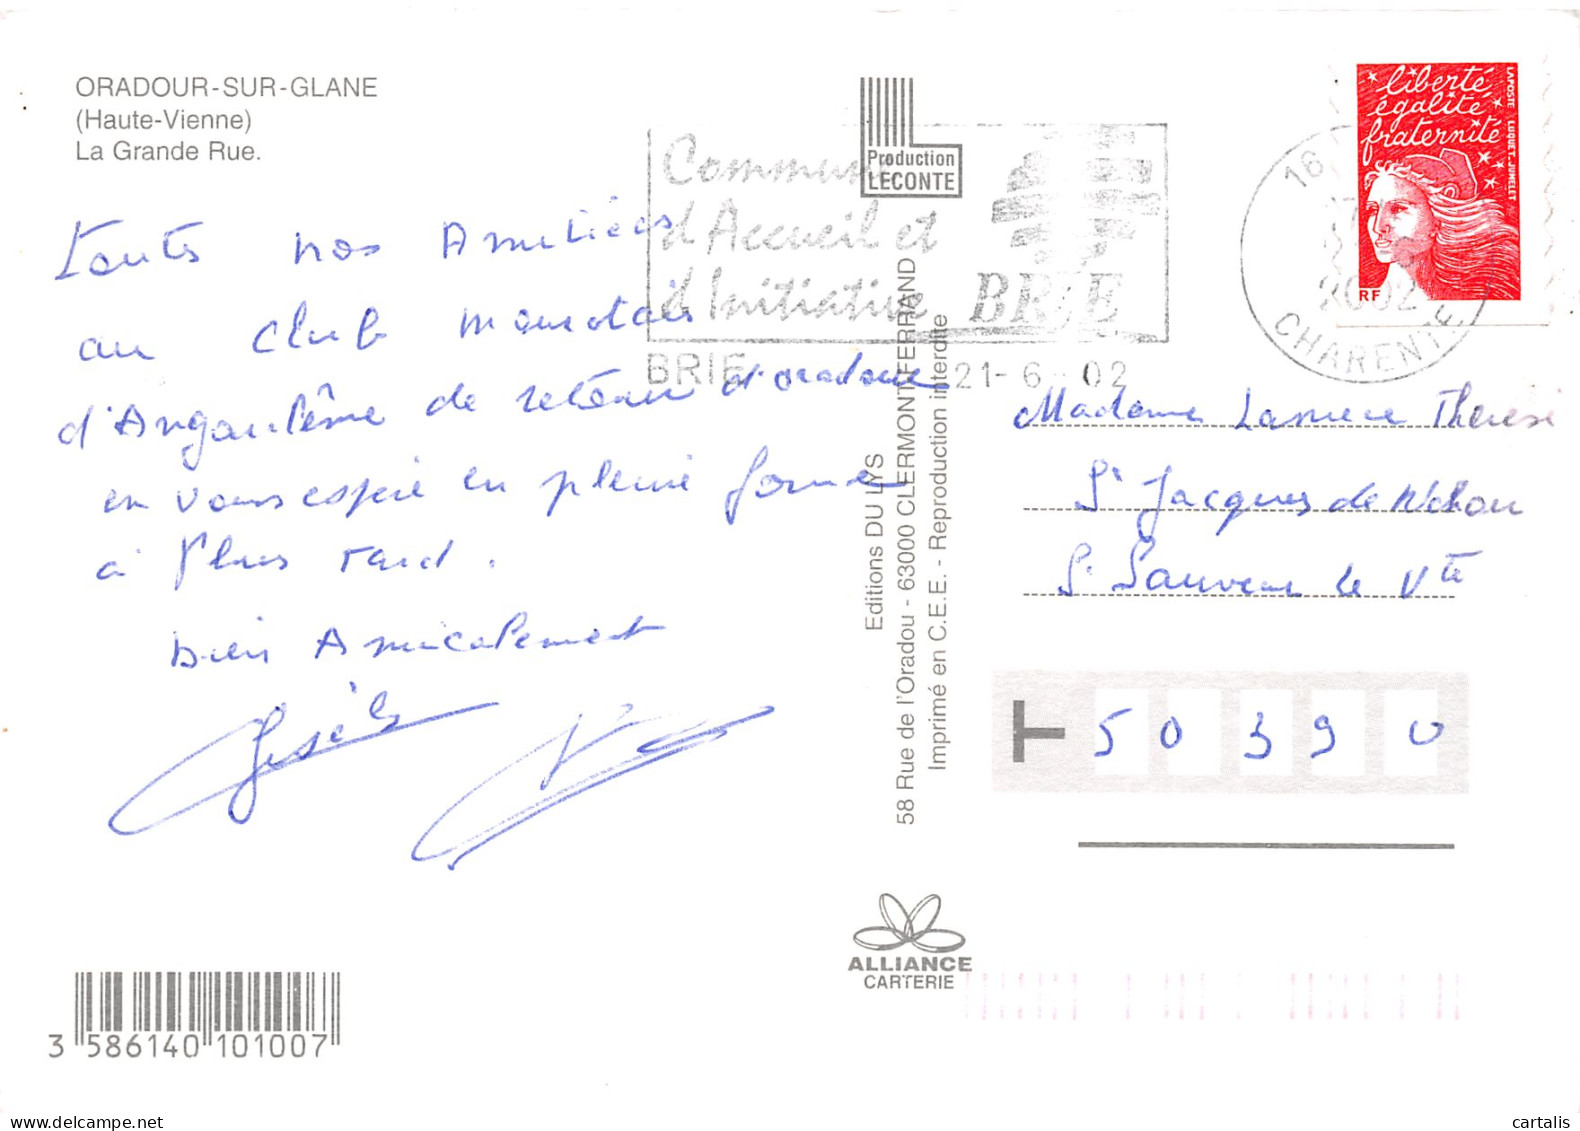 ORADOUR-SUR-GLANE
(Haute-Vienne)
La Grande Rue.
Toutes nos Amitiées
au club
d'Angoulême de retour d'oradour
en vous espère en pleine forme
à Plus tard.
bien Amicalement
Gisèle
Production
LECONTE
Commune
d'Accueil et
d'Initiative BRIE
BRIE 21-6-02
16
2002
CHARENTE
liberté
égalité
fraternité
RF
LA POSTE LUQUET-JUMELET
Editions DU LYS
58 Rue de l'Oradou - 63000 CLERMONT-FERRAND
Imprimé en C.E.E. - Reproduction interdite
Madame Thérèse
St Jacques de Néhou
St Sauveur le Vte
T 50390
ALLIANCE
CARTERIE
3 586140 101007
cartalis